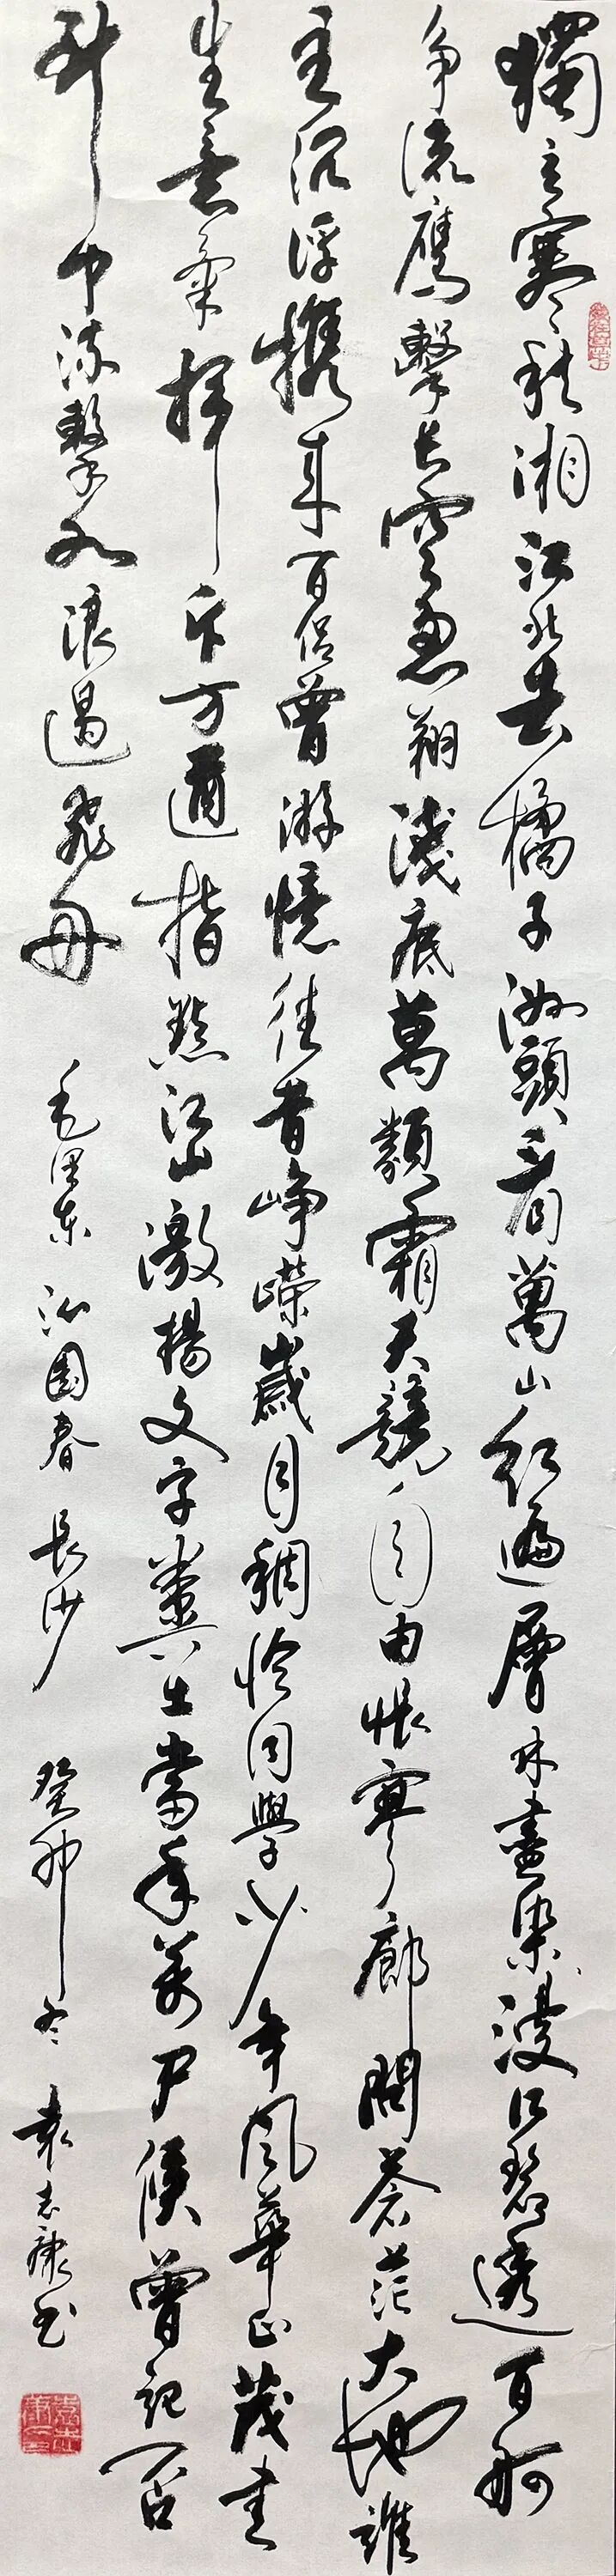 獨立寒秋湘江北去橘子洲頭看萬山紅遍層林盡染漫江碧透百舸
争流鷹擊長空魚翔淺底萬類霜天競自由悵寥廓問蒼茫大地誰
主沉浮携来百侣曾游憶往昔崢嶸歲月稠恰同學少年風華正茂書
生意氣揮斥方遒指點江山激揚文字糞土當年万户侯曾記否
到中流擊水浪遏飛舟 毛澤东 沁園春 長沙 癸卯冬 袁志康书